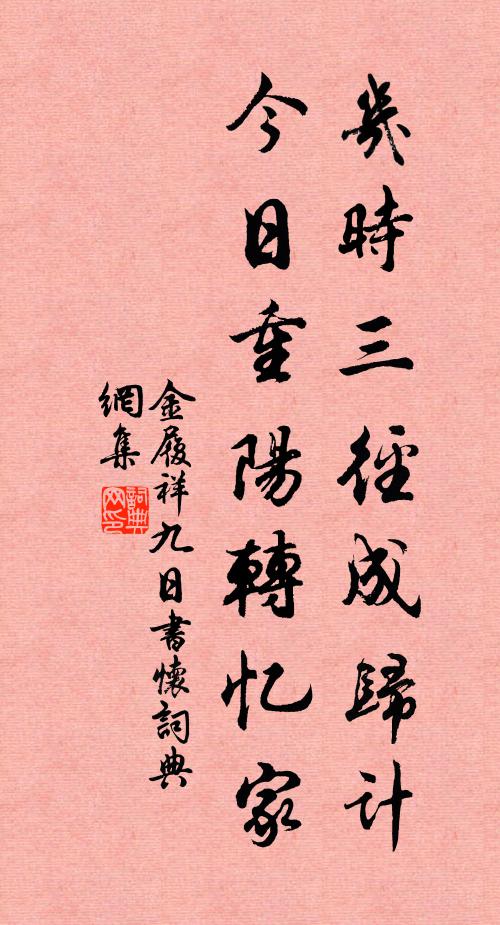 幾時三徑成歸計
今日重陽轉忆家
金履祥九日書懷詞典
網集
詞典
网印